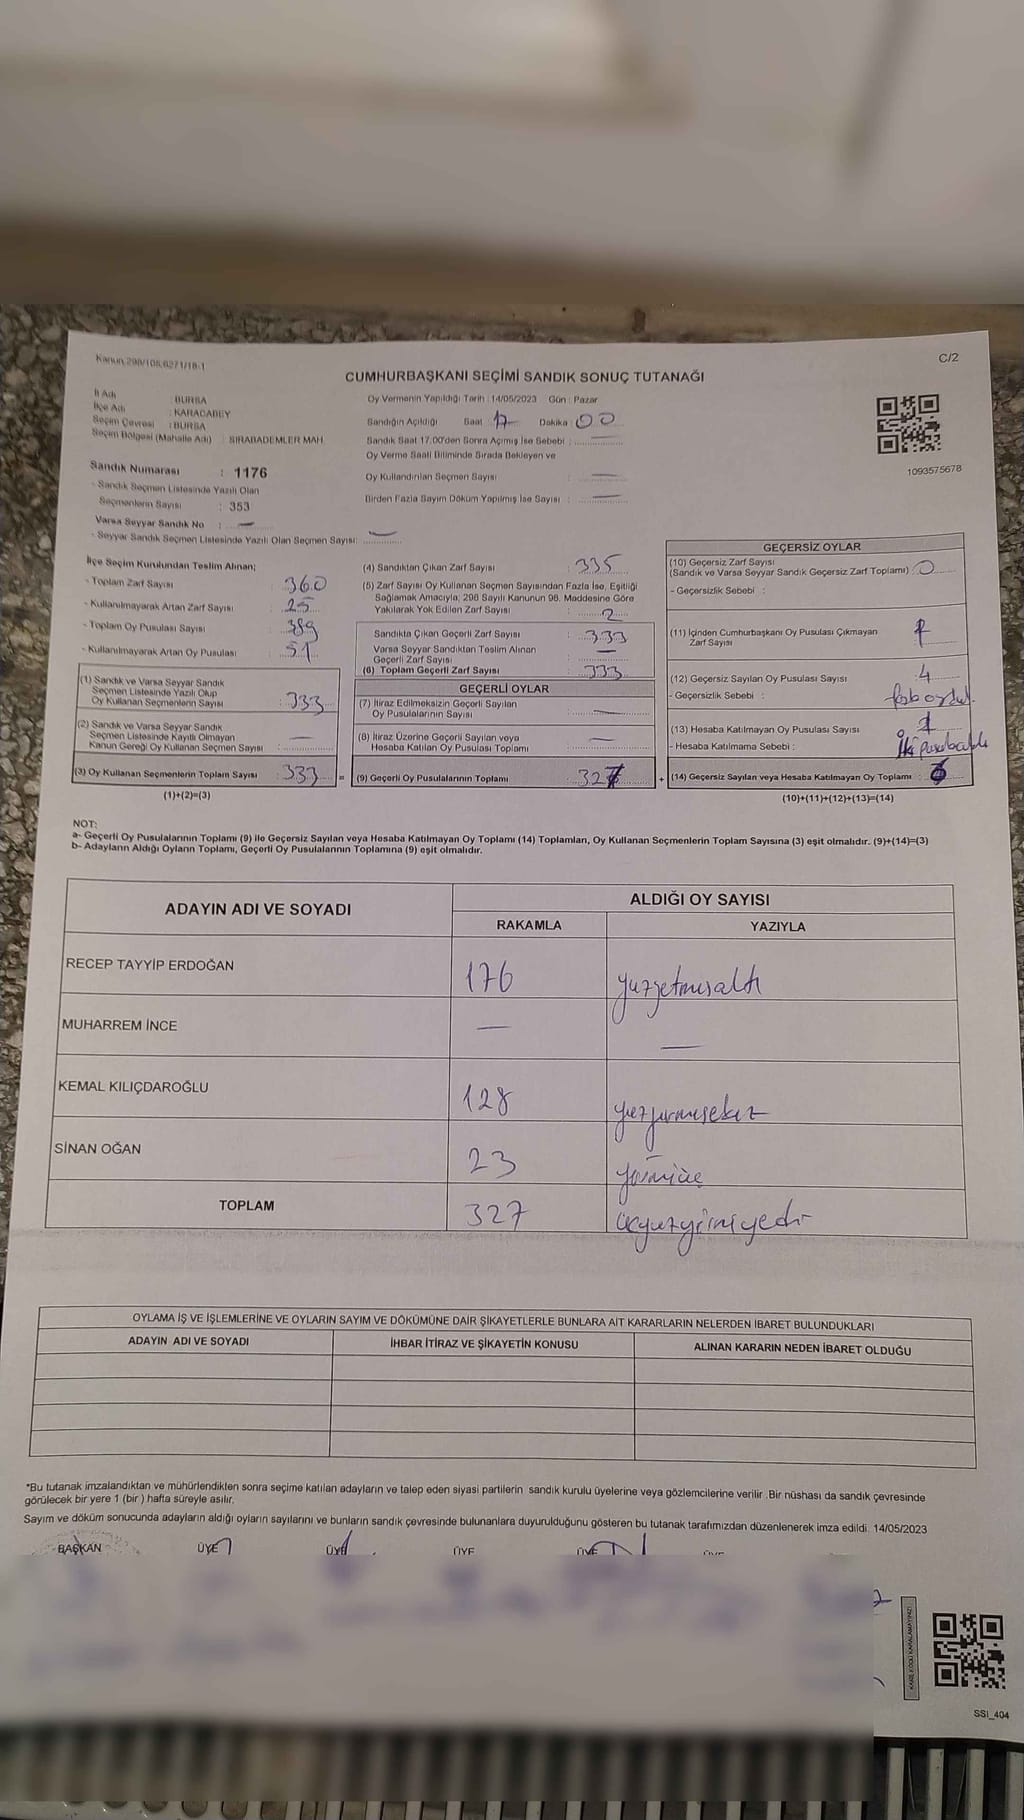 Kanun 298/105,6271/18-1
C/2
CUMHURBAŞKANI SEÇİMİ SANDIK SONUÇ TUTANAĞI
İl Adı : BURSA
İlçe Adı : KARACABEY
Seçim Çevresi : BURSA
Seçim Bölgesi (Mahalle Adı) : SIRABADEMLER MAH.
Sandık Numarası : 1176
- Sandık Seçmen Listesinde Yazılı Olan
Seçmenlerin Sayısı : 353
Varsa Seyyar Sandık No : —
- Seyyar Sandık Seçmen Listesinde Yazılı Olan Seçmen Sayısı: —
Oy Vermenin Yapıldığı Tarih : 14/05/2023 Gün : Pazar
Sandığın Açıldığı Saat 17 Dakika : 00
Sandık Saat 17.00'den Sonra Açılmış İse Sebebi : —
Oy Verme Saati Bitiminde Sırada Bekleyen ve
Oy Kullandırılan Seçmen Sayısı : —
Birden Fazla Sayım Döküm Yapılmış İse Sayısı : —
1093575678
İlçe Seçim Kurulundan Teslim Alınan;
- Toplam Zarf Sayısı : 360
- Kullanılmayarak Artan Zarf Sayısı : 25
- Toplam Oy Pusulası Sayısı : 389
- Kullanılmayarak Artan Oy Pusulası : 51
(1) Sandık ve Varsa Seyyar Sandık
Seçmen Listesinde Yazılı Olup
Oy Kullanan Seçmenlerin Sayısı : 333
(2) Sandık ve Varsa Seyyar Sandık
Seçmen Listesinde Kayıtlı Olmayan
Kanun Gereği Oy Kullanan Seçmen Sayısı : —
(3) Oy Kullanan Seçmenlerin Toplam Sayısı : 333
(1)+(2)=(3)
(4) Sandıktan Çıkan Zarf Sayısı : 335
(5) Zarf Sayısı Oy Kullanan Seçmen Sayısından Fazla İse, Eşitliği
Sağlamak Amacıyla; 298 Sayılı Kanunun 98. Maddesine Göre
Yakılarak Yok Edilen Zarf Sayısı : 2
Sandıkta Çıkan Geçerli Zarf Sayısı : 333
Varsa Seyyar Sandıktan Teslim Alınan
Geçerli Zarf Sayısı : —
(6) Toplam Geçerli Zarf Sayısı : 333
GEÇERLİ OYLAR
(7) İtiraz Edilmeksizin Geçerli Sayılan
Oy Pusulalarının Sayısı : —
(8) İtiraz Üzerine Geçerli Sayılan veya
Hesaba Katılan Oy Pusulası Toplamı : —
= (9) Geçerli Oy Pusulalarının Toplamı : 327
GEÇERSİZ OYLAR
(10) Geçersiz Zarf Sayısı
(Sandık ve Varsa Seyyar Sandık Geçersiz Zarf Toplamı) : 0
- Geçersizlik Sebebi :
(11) İçinden Cumhurbaşkanı Oy Pusulası Çıkmayan
Zarf Sayısı : 1
(12) Geçersiz Sayılan Oy Pusulası Sayısı : 4
- Geçersizlik Sebebi :
(13) Hesaba Katılmayan Oy Pusulası Sayısı : 1
- Hesaba Katılmama Sebebi : İki pusula
+ (14) Geçersiz Sayılan veya Hesaba Katılmayan Oy Toplamı : 6
(10)+(11)+(12)+(13)=(14)
NOT:
a- Geçerli Oy Pusulalarının Toplamı (9) ile Geçersiz Sayılan veya Hesaba Katılmayan Oy Toplamı (14) Toplamları, Oy Kullanan Seçmenlerin Toplam Sayısına (3) eşit olmalıdır. (9)+(14)=(3)
b- Adayların Aldığı Oyların Toplamı, Geçerli Oy Pusulalarının Toplamına (9) eşit olmalıdır.
ADAYIN ADI VE SOYADI
ALDIĞI OY SAYISI
RAKAMLA YAZIYLA
RECEP TAYYİP ERDOĞAN 176 yüzyetmişaltı
MUHARREM İNCE — —
KEMAL KILIÇDAROĞLU 128 yüzyirmisekiz
SİNAN OĞAN 23 yirmiüç
TOPLAM 327 üçyüzyirmiyedi
OYLAMA İŞ VE İŞLEMLERİNE VE OYLARIN SAYIM VE DÖKÜMÜNE DAİR ŞİKAYETLERLE BUNLARA AİT KARARLARIN NELERDEN İBARET BULUNDUKLARI
ADAYIN ADI VE SOYADI İHBAR İTİRAZ VE ŞİKAYETİN KONUSU ALINAN KARARIN NEDEN İBARET OLDUĞU
*Bu tutanak imzalandıktan ve mühürlendikten sonra seçime katılan adayların ve talep eden siyasi partilerin sandık kurulu üyelerine veya gözlemcilerine verilir. Bir nüshası da sandık çevresinde
görülecek bir yere 1 (bir ) hafta süreyle asılır.
Sayım ve döküm sonucunda adayların aldığı oyların sayılarını ve bunların sandık çevresinde bulunanlara duyurulduğunu gösteren bu tutanak tarafımızdan düzenlenerek imza edildi. 14/05/2023
BAŞKAN ÜYE ÜYE ÜYE ÜYE ÜYE
SSI_404